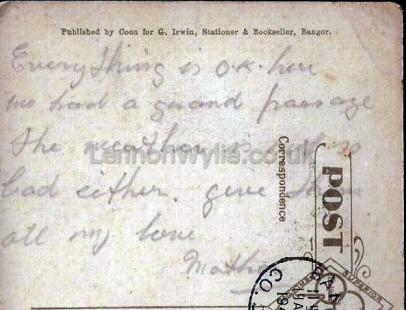 Published by Coon for G. Irwin, Stationer & Bookseller, Bangor.
Everything is O.K. here
we had a grand passage
the weather is not so
bad either. give them
all my love
LennonWylie.co.uk
Correspondence
POST
BAN
CO.
SUPERIOR